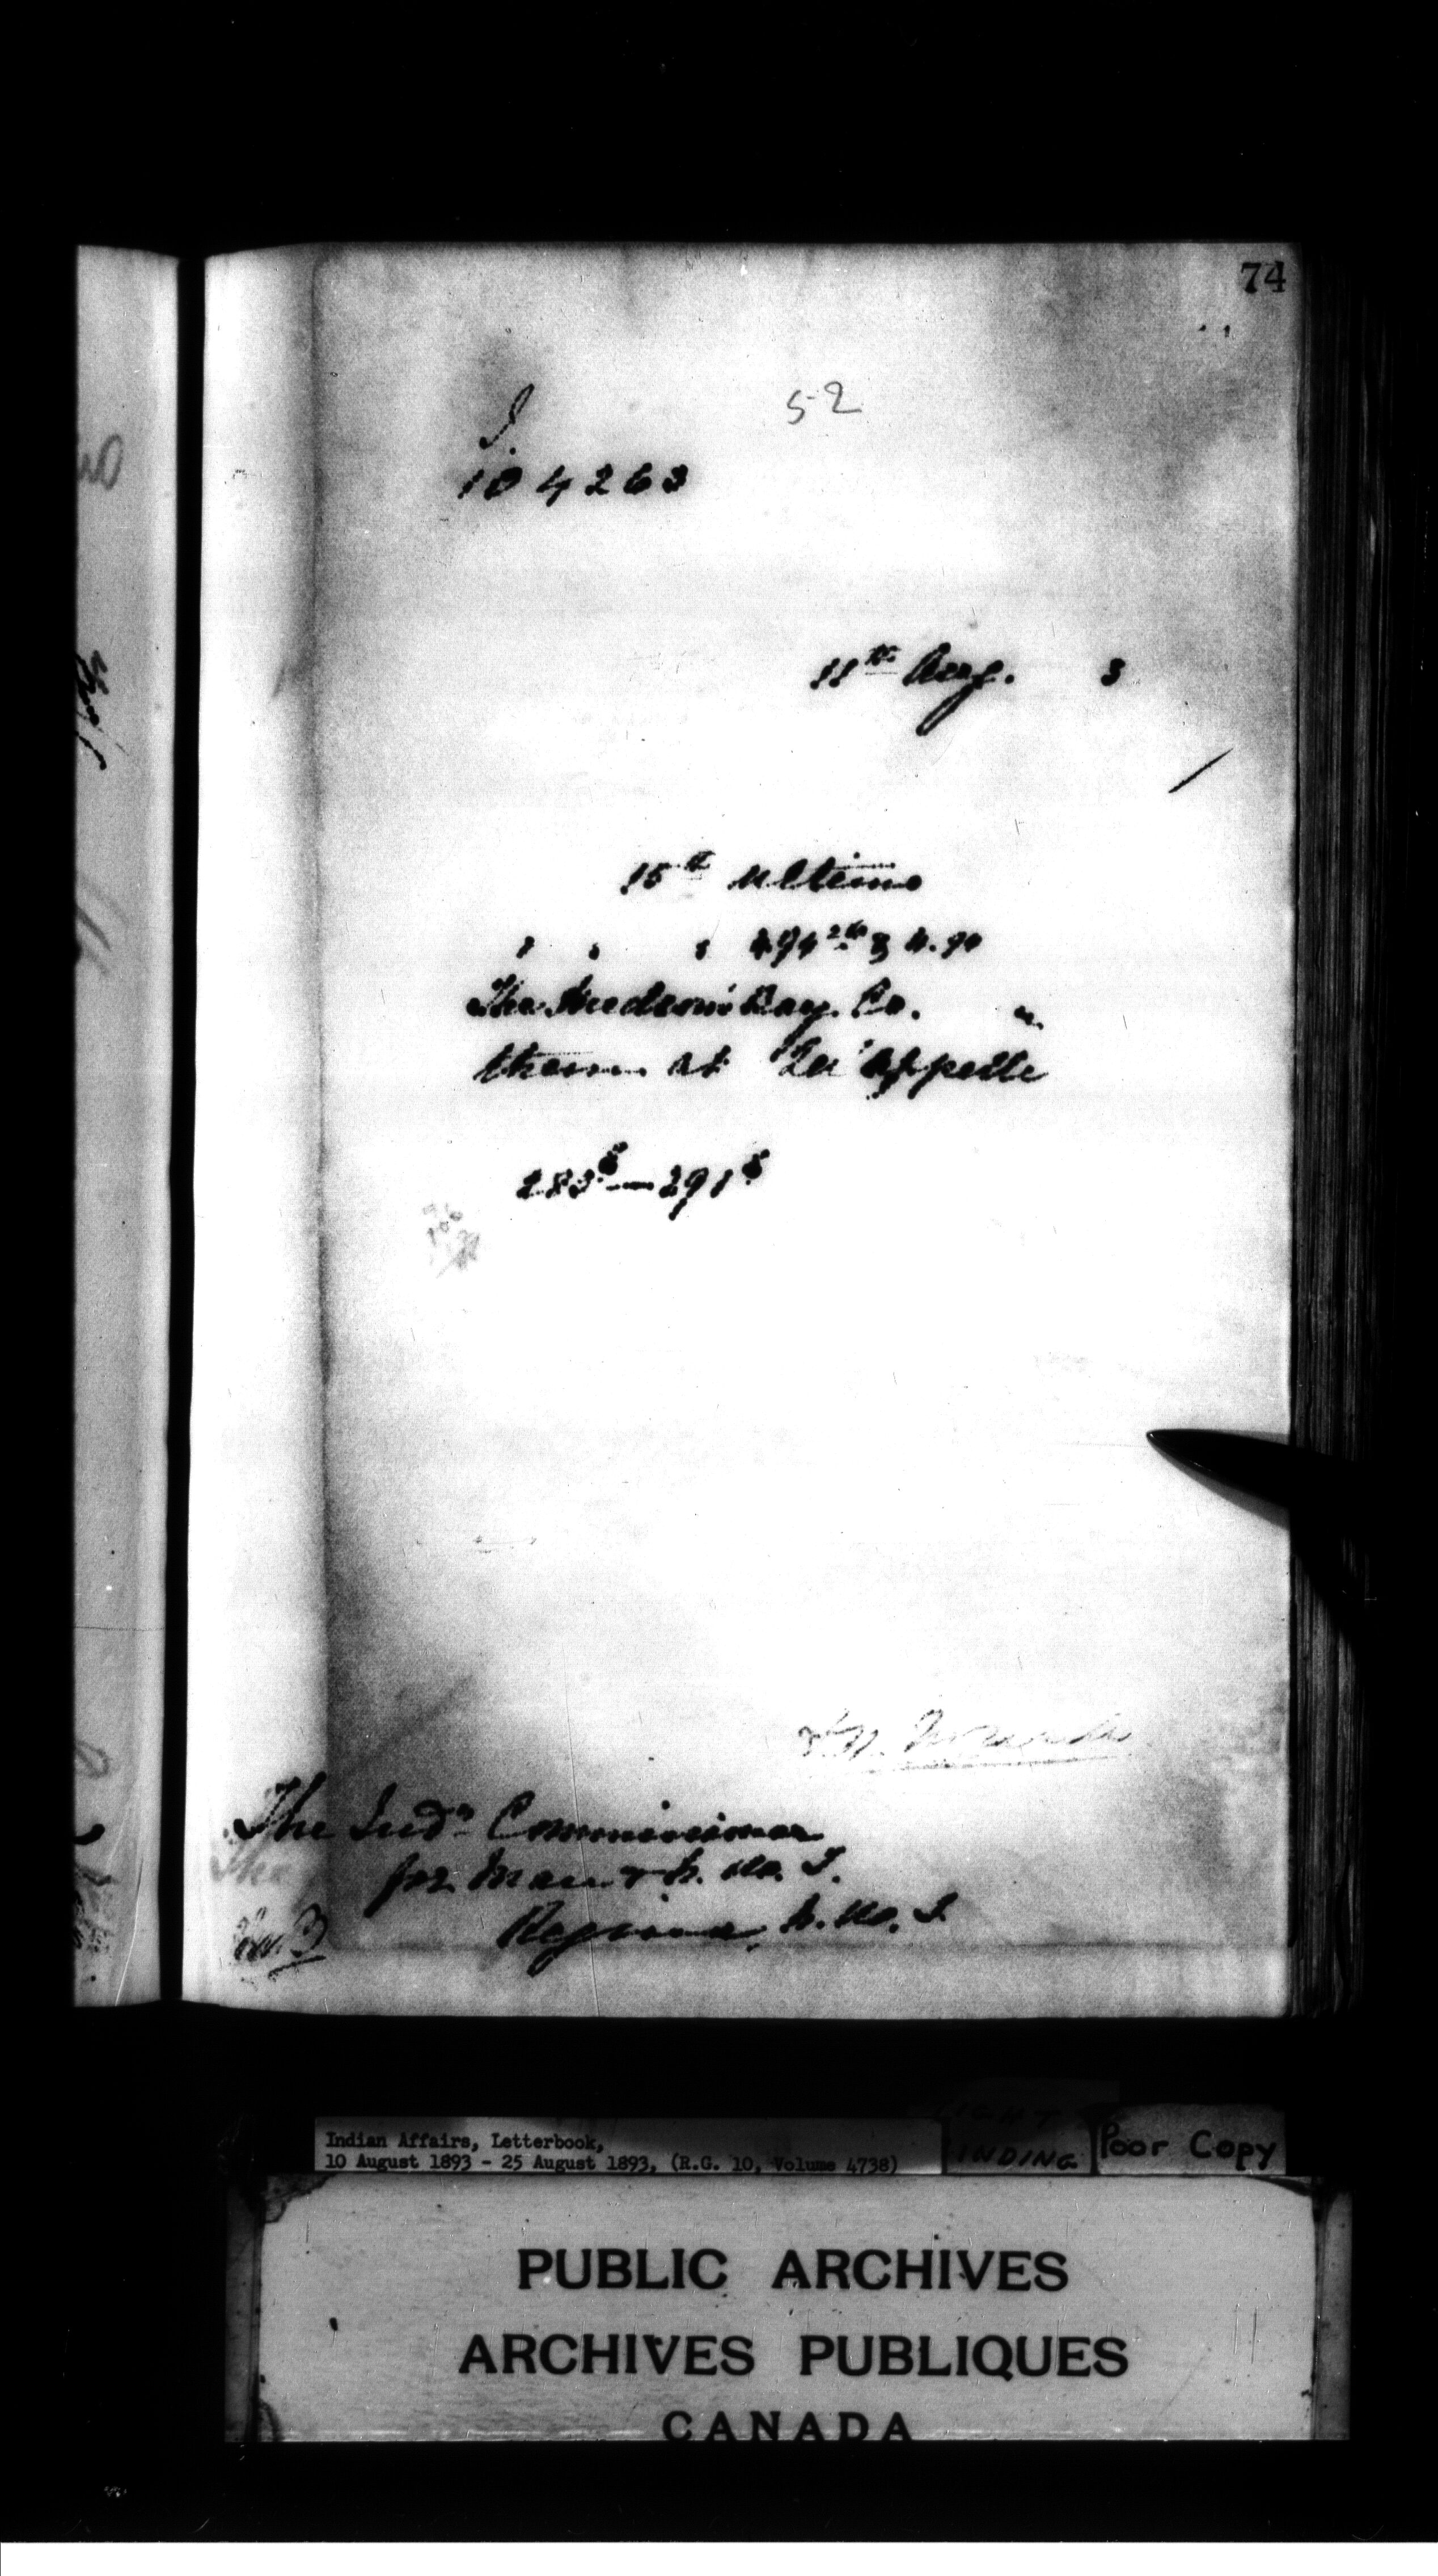 74
52
I.
104263
11th Aug. 3
15th Ultimo
The Hudson's Bay Co.
them at Qu'Appelle
283 — 291
The Indn Commissioner
for Man & N. W. T.
Regina, N. W. T.
Indian Affairs, Letterbook,
10 August 1893 - 25 August 1893, (R.G. 10, Volume 4738)
BINDING
Poor Copy
PUBLIC ARCHIVES
ARCHIVES PUBLIQUES
CANADA